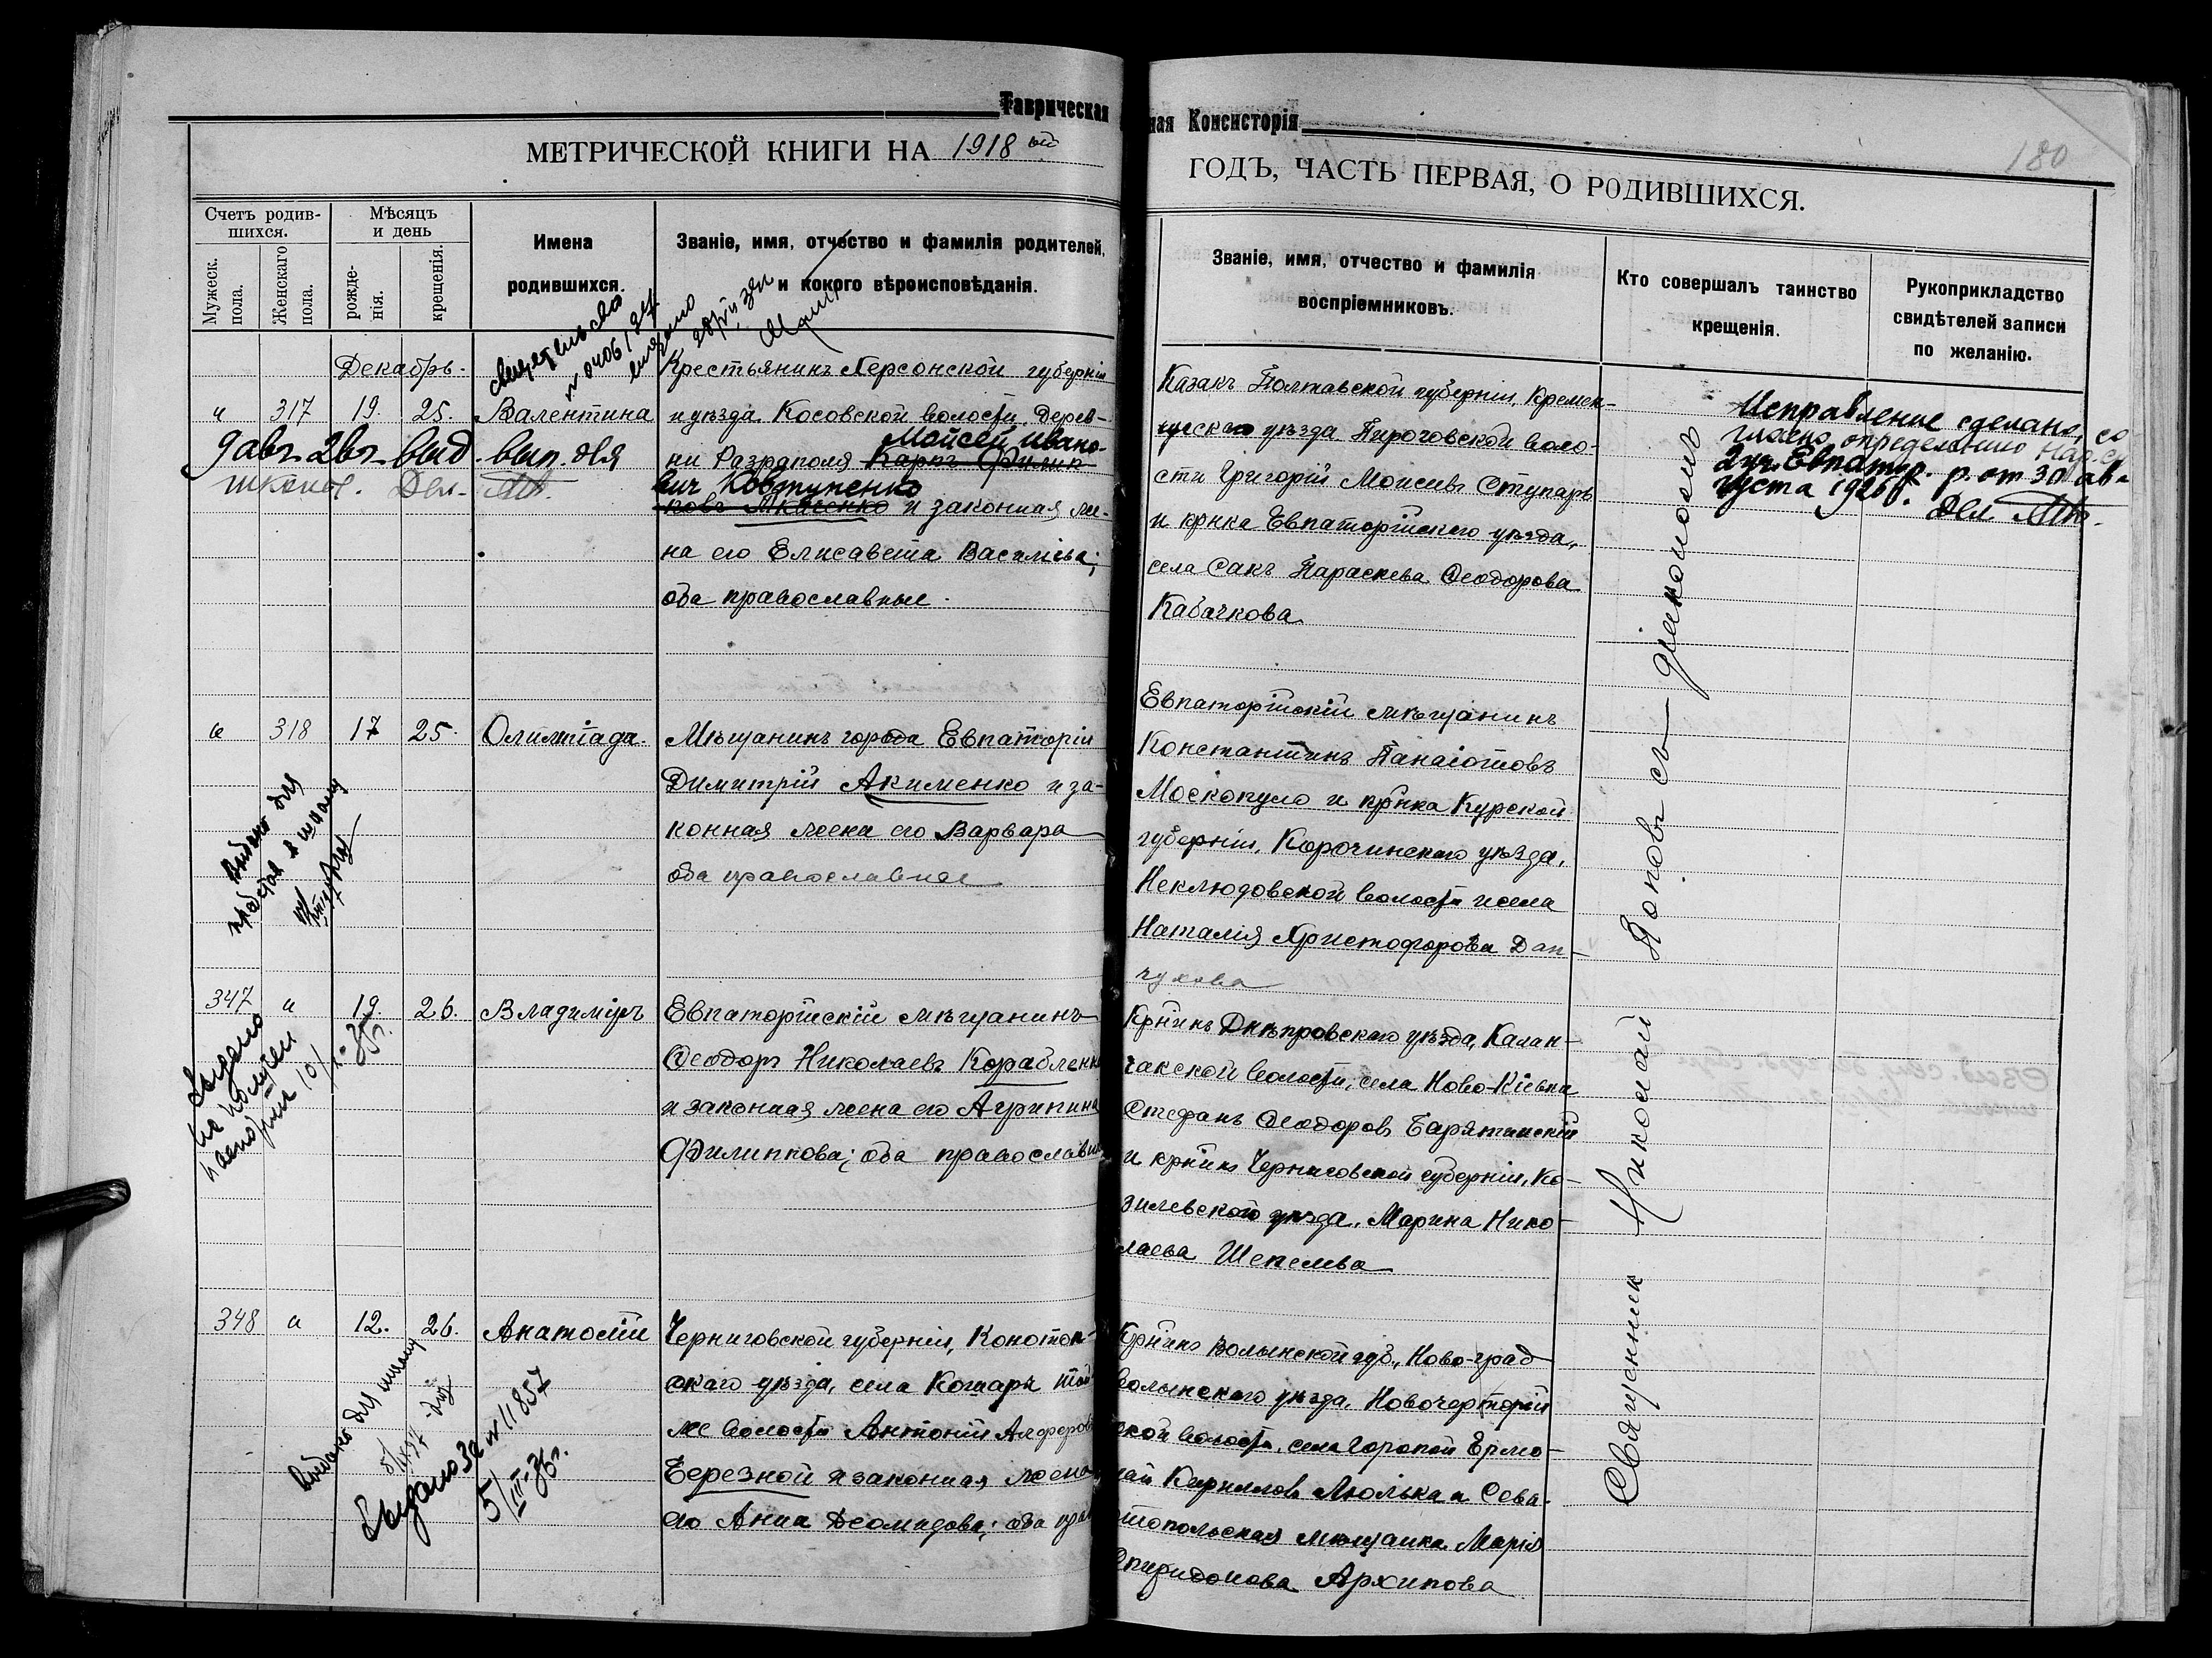 Таврическая
ная Консисторія
МЕТРИЧЕСКОЙ КНИГИ НА 1918 ый
ГОДЪ, ЧАСТЬ ПЕРВАЯ, О РОДИВШИХСЯ.
180
Счетъ родив-
шихся.
Мужеск.
пола.
Женскаго
пола.
Мѣсяцъ
и день
рожде-
нія.
крещенія.
Имена
родившихся.
Званіе, имя, отчество и фамилія родителей,
и кокого вѣроисповѣданія.
Званіе, имя, отчество и фамилія
воспріемниковъ.
Кто совершалъ таинство
крещенія.
Рукоприкладство
свидѣтелей записи
по желанію.
Декабрь.
свидетельство
выдано
и 317 19. 25. Валентина
выд. вып. для
школы. Дел.
Крестьянинъ Херсонской губерніи
и уѣзда. Косовской волости, дерев-
Мойсей Ивано-
ни Разраполя Карпъ Филип
вич Ковтуненко
ковъ и законная же-
на его Елисавета Васильева;
оба православные.
Казакъ Полтавской губерніи, Кремен-
чугскаго уѣзда Пироговской воло-
сти Григорій Моисеевъ Ступарь
и крнка Евпаторійскаго уѣзда,
села Сакъ Параскева Ѳеодорова
Кабачкова.
Исправление сделано, со
гласно определению Нар. с
2 уч. Евпатор. р. от 30 ав-
густа 1926 г.
Дел.
и 318 17 25. Олимпіада.
Выдано для
Мѣщанинъ города Евпаторіи
Димитрій Акименко и за-
конная жена его Варвара
оба православные
Евпаторійскій мѣщанинъ
Константинъ Панаіотовъ
Москопуло и крнка Курской
губерніи, Корочинскаго уѣзда,
Неклюдовской волости и села
Наталія Христофорова Дан-
чукова
347 и 19. 26. Владиміръ
Выдано
на получен
паспорта 10/
Евпаторійскій мѣщанинъ
Ѳеодоръ Николаевъ Корабленко
и законная жена его Агрипина
Филиппова; оба православн
Крнинъ Днѣпровскаго уѣзда, Калан-
чакской волости, села Ново-Кіевка
Стефанъ Ѳеодоровъ Барятинскій
и крнинъ Черниговской губерніи, Ко-
зилевскаго уѣзда, Марина Нико-
лаева Шепелева
348 и 12. 26. Анатолій
Выдано для школы
Выдано за № 11857
5/III-36г.
Черниговской губерніи, Конотоп-
скаго уѣзда, села Кошаръ той
же волости Антоній Алферов
Березной и законная жена
его Анна Деомидова; оба прав
Крнинъ Волынской губ., Ново-град
волынскаго уѣзда, Новочерторій
ской волости, села Горопай Ермо-
лай Кирилловъ Люлька и Сева-
стопольская мѣщанка Марія
Спиридонова Архипова
Священник Николай Поповъ съ діакономъ